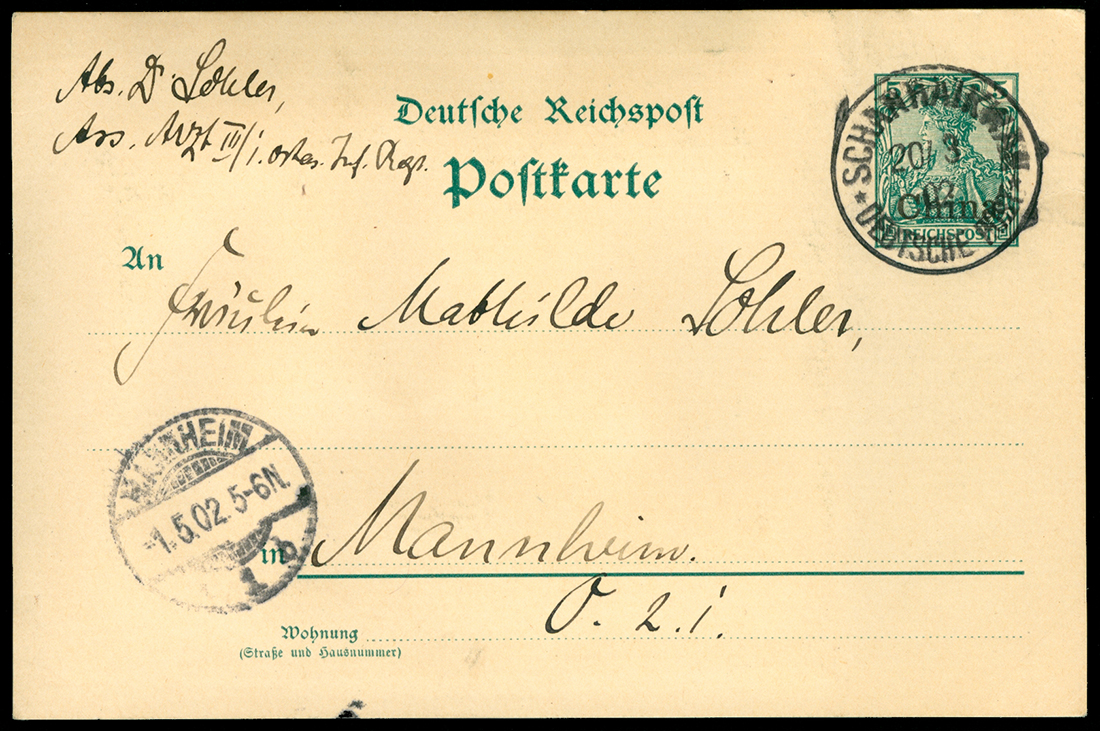 Abs. Dr Lohler,
Ass. Arzt III/1. ostas. Inf. Regt.
Deutsche Reichspost
Postkarte
5 5
China
REICHSPOST
SCHANHAIKWAN
20/3
02
* DEUTSCHE POST *
An
Fräulein Mathilde Lohler,
MANNHEIM
-1.5.02. 5-6N.
1 b
in Mannheim.
O. 2.1.
Wohnung
(Straße und Hausnummer)